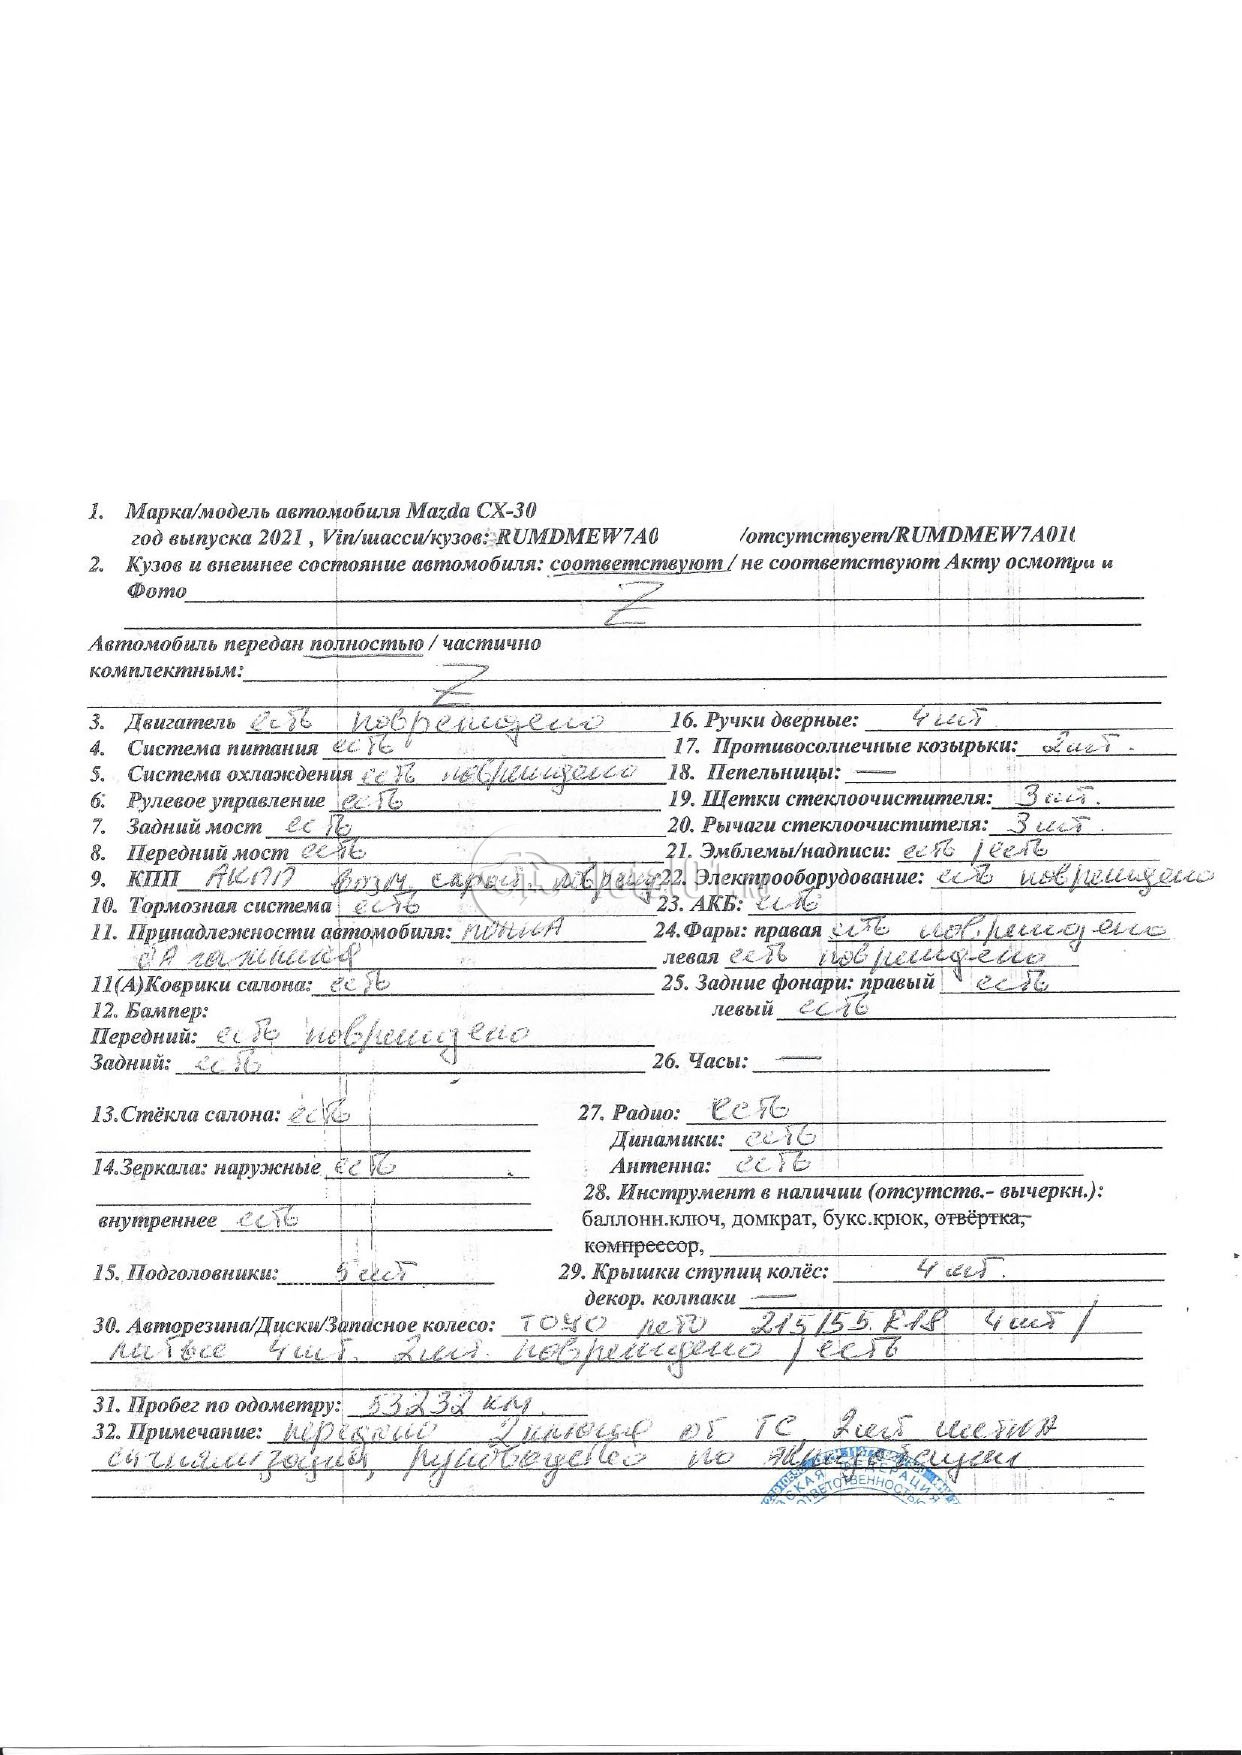 1. Марка/модель автомобиля Mazda CX-30
год выпуска 2021 , Vin/шасси/кузов: RUMDMEW7A0 /отсутствует/RUMDMEW7A01
2. Кузов и внешнее состояние автомобиля: соответствуют / не соответствуют Акту осмотра и
Фото Z
Автомобиль передан полностью / частично
комплектным: Z
3. Двигатель есть повреждено 16. Ручки дверные: 4 шт
4. Система питания есть 17. Противосолнечные козырьки: 2 шт.
5. Система охлаждения есть повреждено 18. Пепельницы: —
6. Рулевое управление есть 19. Щетки стеклоочистителя: 3 шт.
7. Задний мост есть 20. Рычаги стеклоочистителя: 3 шт.
8. Передний мост есть 21. Эмблемы/надписи: есть / есть
9. КПП АКПП возм. скрыт. поврежд 22. Электрооборудование: есть повреждено
10. Тормозная система есть 23. АКБ: есть
11. Принадлежности автомобиля: полка 24.Фары: правая есть повреждено
багажника левая есть повреждено
11(А)Коврики салона: есть 25. Задние фонари: правый есть
12. Бампер: левый есть
Передний: есть повреждено
Задний: есть 26. Часы: —
13.Стёкла салона: есть 27. Радио: есть
Динамики: есть
14.Зеркала: наружные есть Антенна: есть
28. Инструмент в наличии (отсутств.- вычеркн.):
внутреннее есть баллонн.ключ, домкрат, букс.крюк, отвёртка,
компрессор,
15. Подголовники: 5 шт 29. Крышки ступиц колёс: 4 шт.
декор. колпаки —
30. Авторезина/Диски/Запасное колесо: TOYO лето 215/55. R18 4 шт /
литые 4 шт. 2 шт. повреждено / есть
31. Пробег по одометру: 53232 км.
32. Примечание: передано 2 ключа от ТС, 2 шт метка
сигнализации, руководство по эксплуатации
СКАЯ ФЕДЕРАЦИЯ
ОТВЕТСТВЕННОСТЬЮ